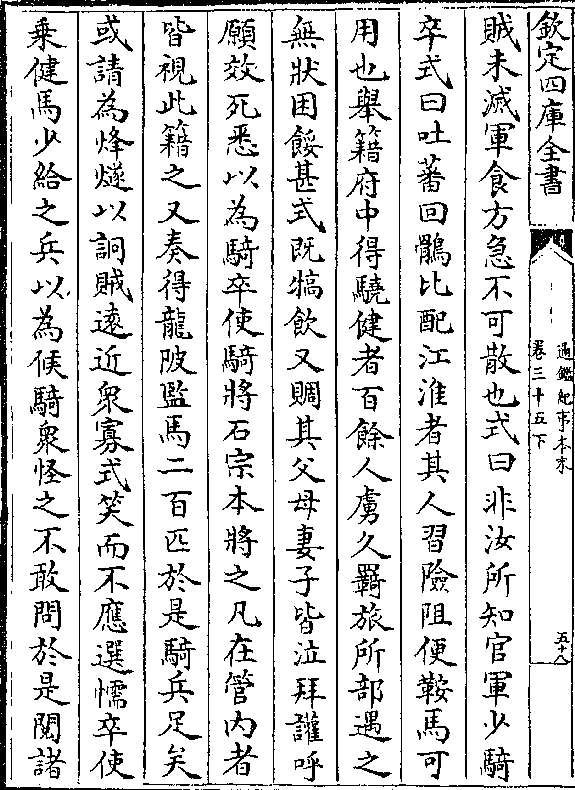 欽定四庫全書
通鑑紀事本末
卷三十五下
五十八
賊未滅軍食方急不可散也式曰非汝所知官軍少騎
卒式曰吐蕃回鶻比配江淮者其人習險阻便鞍馬可
用也舉籍府中得驍健者百餘人虜久羈旅所部遇之
無狀困餒甚式既犒飲又賙其父母妻子皆泣拜讙呼
願效死悉以為騎卒使騎將石宗本將之凡在管内者
皆視此籍之又奏得龍陂監馬二百匹於是騎兵足矣
或請為烽燧以詗賊遠近衆寡式笑而不應選懦卒使
乗健馬少給之兵以為候騎衆怪之不敢問於是閲諸